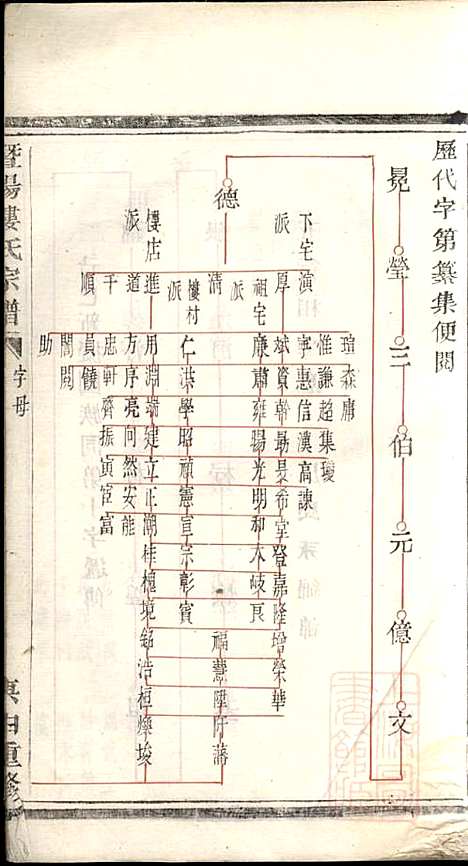 歷代字第纂集便閱
晃瑩三伯元億文
德
下宅派
演
瑄森庸
惟謙超集璦
字惠信漢高諫
厚
斌資幹勗晸希堂登嘉隆增榮華
祖宅派
康肅雍暘光明和大岐良
清
福慧陞
藩
樓村派
仁洪學昭禎憲宣宗彰賓
樓店派
進
用淵端建立正湖桂槐境錦浩桓爕埈
道
方序亮向然安能
千
忠軒齊振寅宦富
順
員鐃
閣閎
助
暨陽樓氏宗譜
字母
東白重修